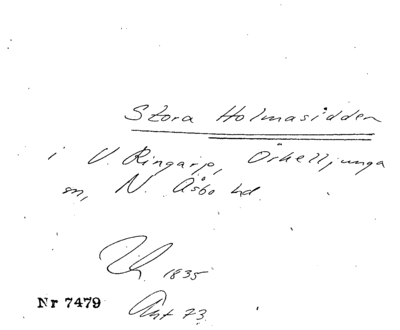 Stora Holmasidden
i V. Ringarp, Örkelljunga
sn, N. Åsbo hd.
1835
Nr 7479
Ant 73.